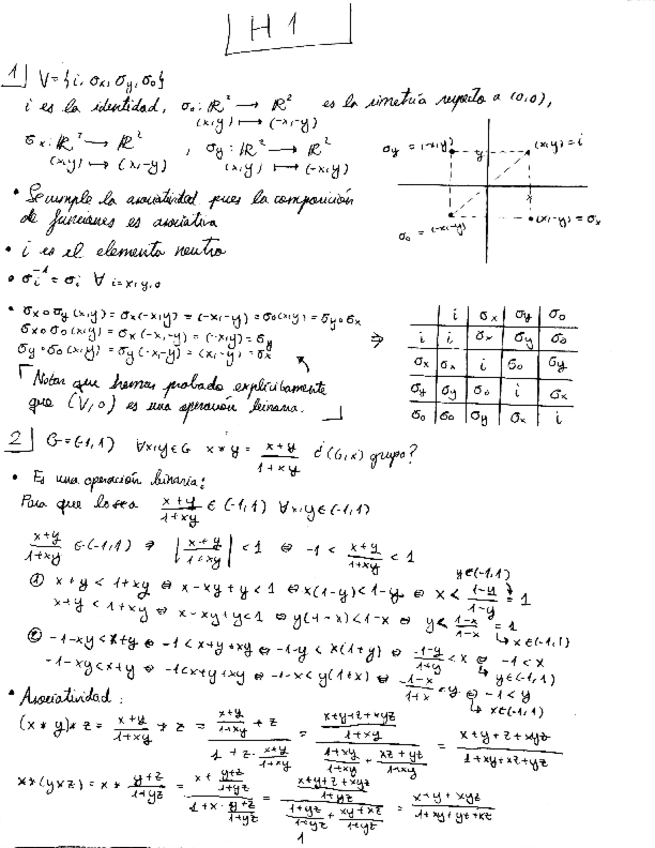 H 1
1 V={i, σx, σy, σ0}
i es la identidad, σ0: ℝ² → ℝ² es la simetría respecto a (0,0),
(x,y) ↦ (-x,-y)
σx: ℝ² → ℝ² , σy: ℝ² → ℝ²
(x,y) ↦ (x,-y) (x,y) ↦ (-x,y)
σy = (-x,y) y (x,y) = i
x
σ0 = (-x,-y) (x,-y) = σx
• Se cumple la asociatividad pues la composición
de funciones es asociativa
• i es el elemento neutro
• σi⁻¹ = σi ∀ i=x,y,0
• σx∘σy(x,y) = σx(-x,y) = (-x,-y) = σ0(x,y) = σy∘σx
σx∘σ0(x,y) = σx(-x,-y) = (-x,y) = σy
σy∘σ0(x,y) = σy(-x,-y) = (x,-y) = σx
⇒
i σx σy σ0
i i σx σy σ0
σx σx i σ0 σy
σy σy σ0 i σx
σ0 σ0 σy σx i
Notar que hemos probado explícitamente
que (V,∘) es una operación binaria.
2 G=(-1,1) ∀x,y∈G x*y = (x+y)/(1+xy) ¿(G,*) grupo?
• Es una operación binaria:
Para que lo sea (x+y)/(1+xy) ∈ (-1,1) ∀x,y∈(-1,1)
(x+y)/(1+xy) ∈ (-1,1) ⇔ |(x+y)/(1+xy)| < 1 ⇔ -1 < (x+y)/(1+xy) < 1
y∈(-1,1)
① x+y < 1+xy ⇔ x-xy+y < 1 ⇔ x(1-y) < 1-y ⇔ x < (1-y)/(1-y) = 1
x+y < 1+xy ⇔ x-xy+y < 1 ⇔ y(1-x) < 1-x ⇔ y < (1-x)/(1-x) = 1
x∈(-1,1)
② -1-xy < x+y ⇔ -1 < x+y+xy ⇔ -1-y < x(1+y) ⇔ (-1-y)/(1+y) < x ⇔ -1 < x
y∈(-1,1)
-1-xy < x+y ⇔ -1 < x+y+xy ⇔ -1-x < y(1+x) ⇔ (-1-x)/(1+x) < y ⇔ -1 < y
x∈(-1,1)
• Asociatividad:
(x*y)*z = (x+y)/(1+xy) * z = ((x+y)/(1+xy) + z)/(1+z·(x+y)/(1+xy)) = ((x+y+z+xyz)/(1+xy))/((1+xy)/(1+xy) + (xz+yz)/(1+xy)) = (x+y+z+xyz)/(1+xy+xz+yz)
x*(y*z) = x * (y+z)/(1+yz) = (x + (y+z)/(1+yz))/(1+x·(y+z)/(1+yz)) = ((x+y+z+xyz)/(1+yz))/((1+yz)/(1+yz) + (xy+xz)/(1+yz)) = (x+y+xyz)/(1+xy+yz+xz)
1